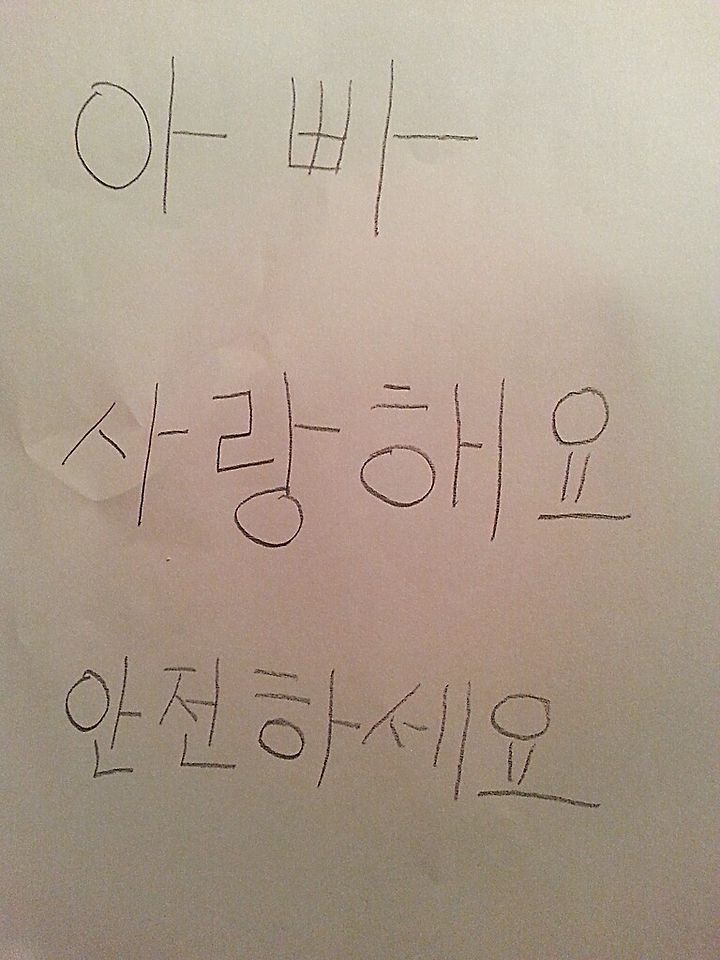 아빠
사랑해요
안전하세요